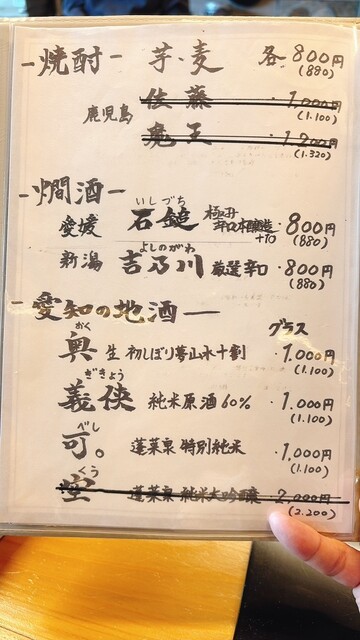 -焼酎- 芋・麦 各800円
(880)
鹿児島 佐藤 ・1,000円
(1.100)
魔王 ・1,200円
(1.320)
-燗酒-
いしづち
愛媛 石鎚 辛口本醸造 +10 ・800円
(880)
よしのがわ
新潟 吉乃川 厳選辛口 ・800円
(880)
-愛知の地酒-
おく グラス
奥 生 初しぼり夢山水十割 ・1.000円
(1.100)
ぎきょう
義侠 純米原酒60% ・1.000円
(1.100)
べし
可。 蓬莱泉 特別純米 ・1,000円
(1.100)
くう
空 蓬莱泉 純米大吟醸 ・2,000円
(2.200)